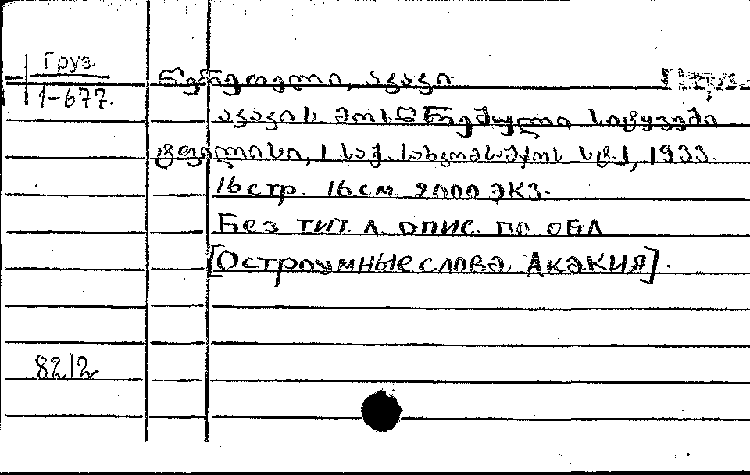 Груз
1-677.
წერეთელი, აკაკი
აკაკის მოსწრებული სიტყვები
ტფილისი, 1933.
16 стр. 16 см 2000 экз.
Без тит. л. опис. по обл
[Остроумные слова Акакия].
82/2